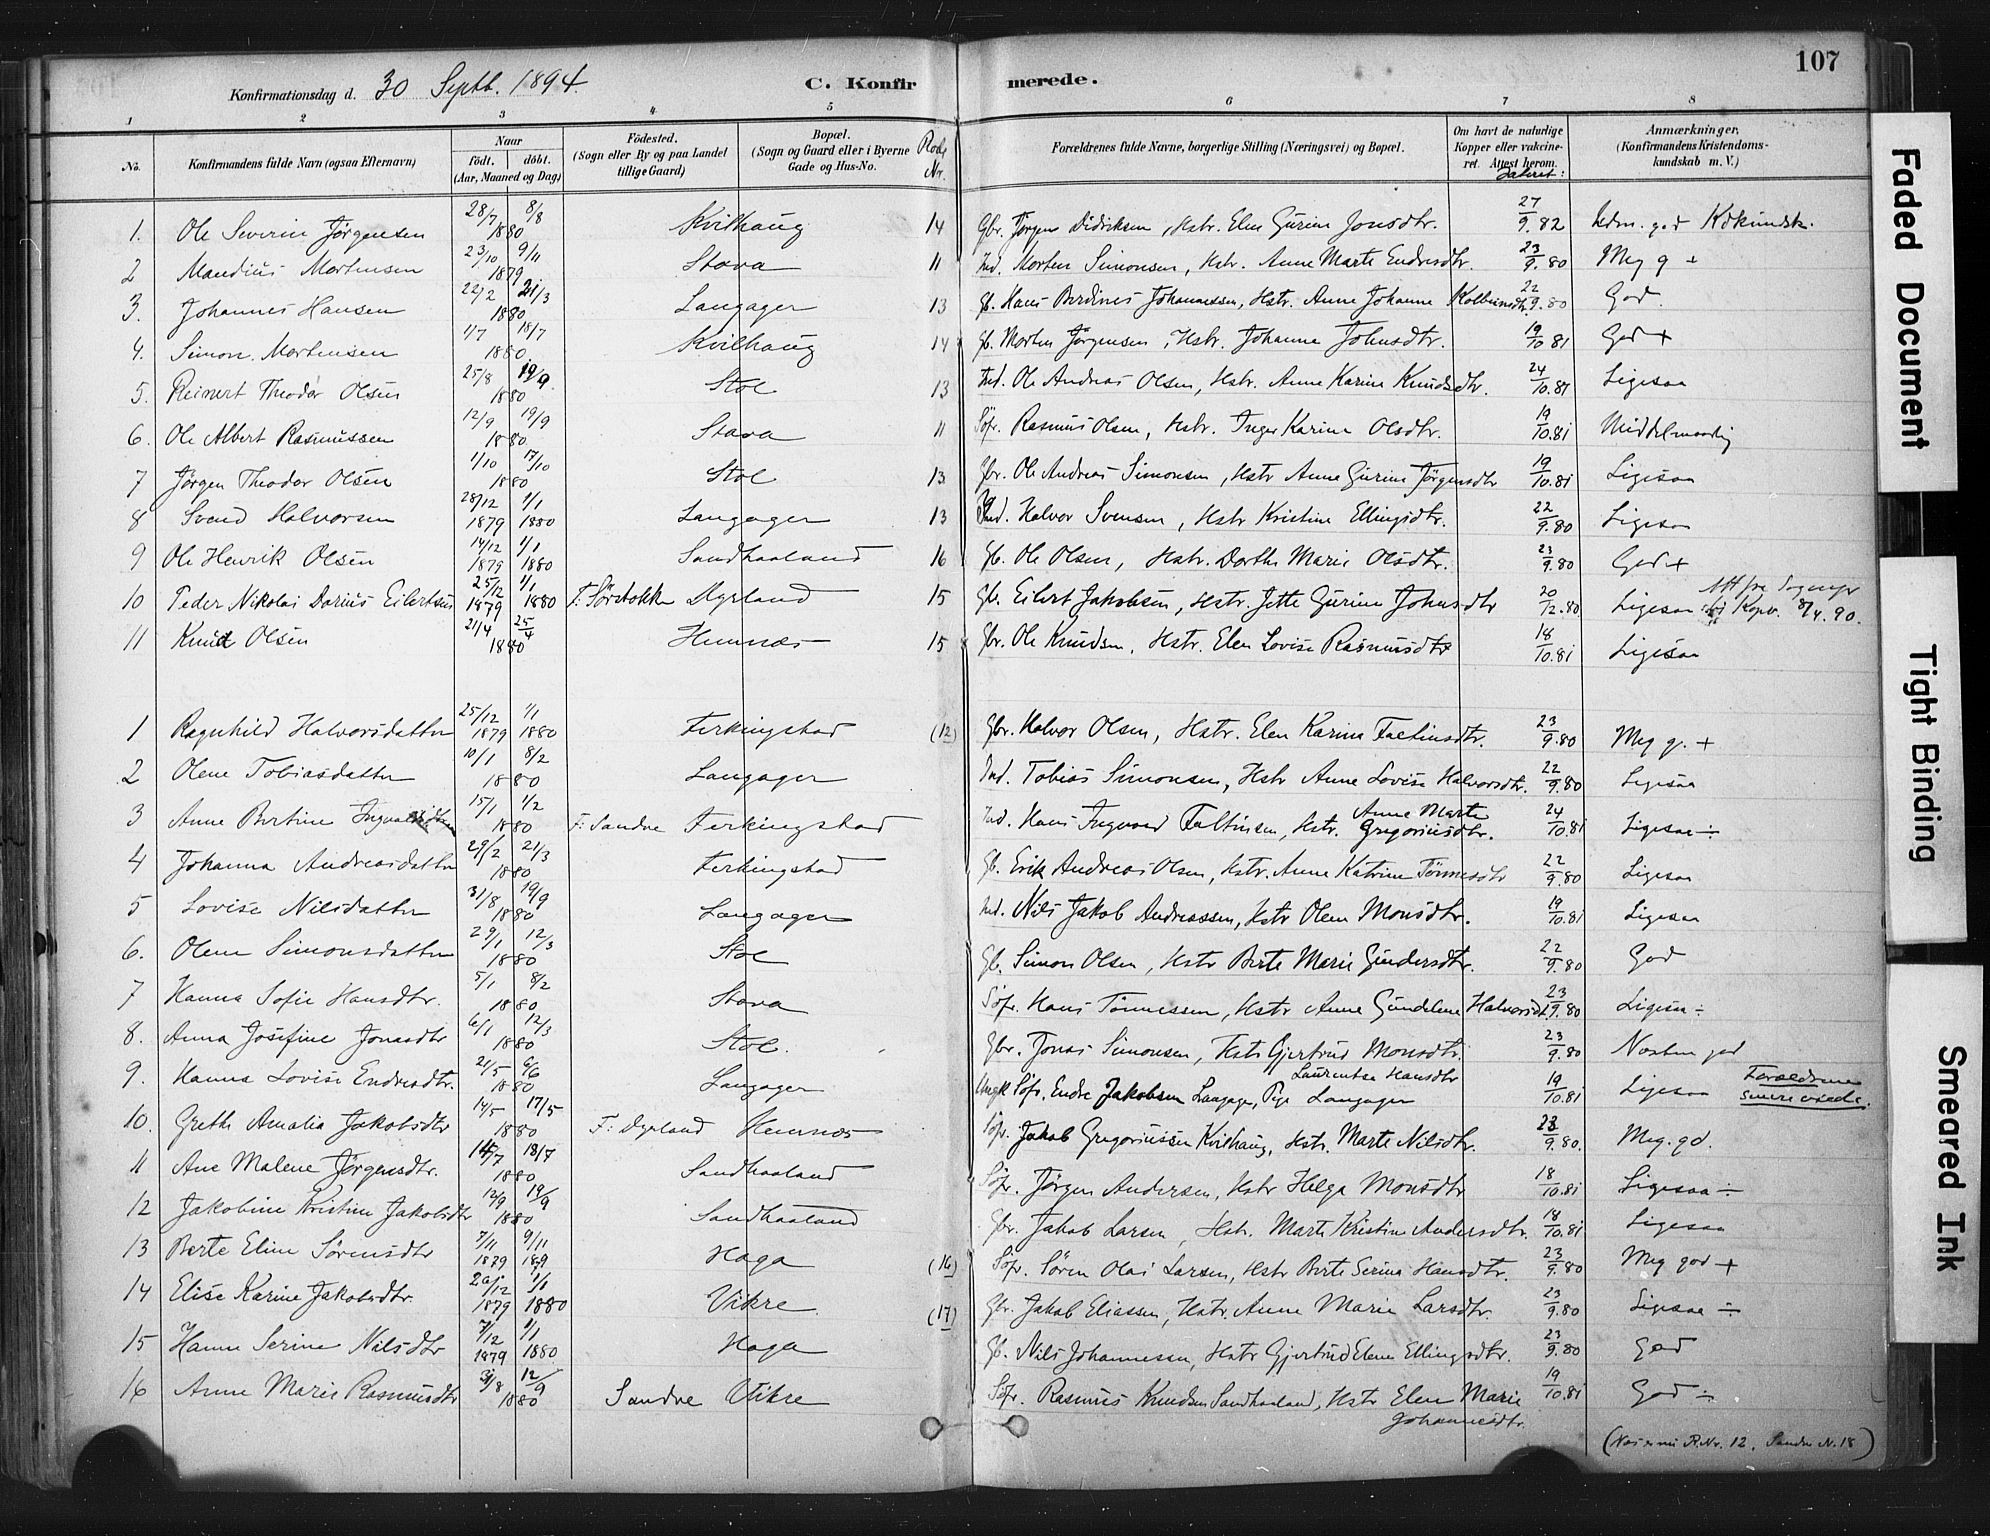 107
Konfirmationsdag d. 30 Septb. 1894. C. Konfirmerede.
1 2 3 4 5 6 7 8
No. Konfirmandens fulde Navn (ogsaa Efternavn) Naar födt. döbt. (Aar, Maaned og Dag) Födested. (Sogn eller By og paa Landet tillige Gaard) Bopæl. (Sogn og Gaard eller i Byerne Gade og Hus-No. Rode Nr. Forældrenes fulde Navne, borgerlige Stilling (Næringsvei) og Bopæl. Om havt de naturlige Kopper eller vakcineret. Attest herom. Dateret: Anmærkninger. (Konfirmandens Kristendomskundskab m. V.)
1. Ole Severin Jørgensen 28/7 8/8 1880 Kvilhaug 14 Gbr. Jørgen Didriksen, Hstr. Elen Gurine Jonsdtr. 27/9.82 god Kdkundsk.
2 Mandius Mortensen 23/10 9/11 1879 Stava 11 Ind. Morten Simonsen, Hstr. Anne Marte Endresdtr. 23/9.80 Meg g +
3. Johannes Hansen 22/2 21/3 1880 Langager 13 Gb. Hans Berdines Johannessen, Hstr. Anne Johanne 22/9.80 God.
4. Simon Mortensen 1/7 18/7 1880 Kvilhaug 14 Gb. Morten Jørgensen, Hstr. Johanne Johnsdtr. 19/10 81 God +
5. Reinert Theodor Olsen 25/8 19/9 1880 Stol 13 Ind. Ole Andreas Olsen, Hstr. Anne Karine Knudsdtr. 24/10.81 Ligesaa
6. Ole Albert Rasmussen 12/9 19/9 1880 Stava 11 Söfr. Rasmus Olsen, Hstr. Inger Karine Olsdtr. 19/10.81 Middelmaadig
7 Jørgen Theodor Olsen 1/10 17/10 1880 Stol 13 Gbr. Ole Andreas Simonsen, Hstr Anne Gurine Jörgensdtr 19/10.81 Ligesaa
8 Svend Halvorsen 28/12 1879 1/1 1880 Langager 13 Ind. Halvor Svensen, Hstr Kristine Ellingsdtr. 22/9.80 Ligesaa
9 Ole Henrik Olsen 14/12 1879 1/1 1880 Sandhaaland 16 Gb. Ole Olsen, Hstr. Dorthe Marie Olsdtr. 23/9.80 God +
10 Peder Nikolai Darius Eilertsen 25/12 1879 1/1 1880 F: Sörstokke Dyrland 15 Gb. Eilert Jakobsen, Hstr. Jette Gurine Johnsdtr 20/12.80 Ligesaa Att fra Sognepr i Kopv. 8/4.90.
11 Knud Olsen 21/4 25/4 1880 Hemnæs 15 Gbr. Ole Knudsen, Hstr. Elen Lovise Rasmusdtr 18/10.81 Ligesaa
1 Ragnhild Halvorsdatter 25/12 1879 1/1 1880 Ferkingstad (12) Gbr. Halvor Olsen, Hstr. Elen Karine Faltinsdtr. 23/9.80 Meg g. +
2 Olene Tobiasdatter 10/1 8/2 1880 Langager Ind. Tobias Simonsen, Hstr Anne Lovise Halvorsdtr. 22/9.80 Ligesaa
3 Anne Bertine Ingvaldsdtr 15/1 1/2 1880 F: Sandve Ferkingstad Ind. Hans Ingvald Faltinsen, Hstr. Anne Marte Gregoriusdtr. 24/10.81 Ligesaa ÷
4 Johanna Andreasdatter 29/2 21/3 1880 Ferkingstad Gb. Erik Andreas Olsen, Hstr. Anne Katrine Tönnesdtr 22/9.80 Ligesaa
5 Lovise Nilsdatter 31/8 19/9 1880 Langager Ind. Nils Jakob Andreassen, Hstr Olene Monsdtr. 19/10.81 Ligesaa
6. Olene Simonsdatter 29/1 12/3 1880 Stol Gb. Simon Olsen, Hstr Berte Marie Gundersdtr. 22/9.80 God
7 Hanna Sofie Hansdtr. 5/1 8/2 1880 Stava Söfr. Hans Tönnessen, Hstr Anne Gundelene Halvorsdtr 23/9.80 Ligesaa ÷
8. Anna Josefine Jonasdtr 6/1 12/3 1880 Stol. Gbr. Jonas Simonsen, Hstr Gjertrud Monsdtr. 23/9.80 Næsten god
9. Hanna Lovise Endresdtr. 21/5 6/6 1880 Langager Ungk Söfr. Endre Jakobsen Langager, Pige Laurentse Hansdtr Langager 19/10.81 Ligesaa Forældrene senere viede.
10. Grethe Amalia Jakobsdtr 14/5 17/5 1880 F: Dyrland Hemnæs Söfr. Jakob Gregoriussen Kvilhaug, Hstr. Marte Nilsdtr. 23/9.80. Meg. gd.
11 Ane Malene Jörgensdtr. 14/7 18/7 1880 Sandhaaland Söfr. Jörgen Andersen, Hstr Helga Monsdtr 18/10.81 Ligesaa ÷
12 Jakobine Kristine Jakobsdtr 12/9 19/9 1880 Sandhaaland Gbr. Jakob Larsen, Hstr. Marte Kristine Andersdtr. 18/10.81 Ligesaa
13 Berte Eline Sørensdtr 7/11 1879 9/11 1879 Haga (16) Söfr. Sören Olai Larsen, Hstr Berte Serina Hansdtr. 23/9.80 Meg god +
14 Elise Karine Jakobsdtr. 26/12 1879 1/1 1880 Vikre (17) Gbr. Jakob Eliassen, Hstr. Anne Marie Larsdtr. 23/9.80 Ligesaa ÷
15 Hanne Serine Nilsdtr 7/12 1879 1/1 1880 Haga Gb. Nils Johannesen, Hstr Gjertrud Elene Ellingsdtr. 23/9.80 God
16 Anne Marie Rasmusdtr 31/8 12/9 1880 Sandve Vikre Söfr. Rasmus Knudsen Sandhaaland, Hstr Elen Marie Johannesdtr. 19/10.81 God ÷
R.Nr. 12, Sandve N. 18)
Faded Document
Tight Binding
Smeared Ink